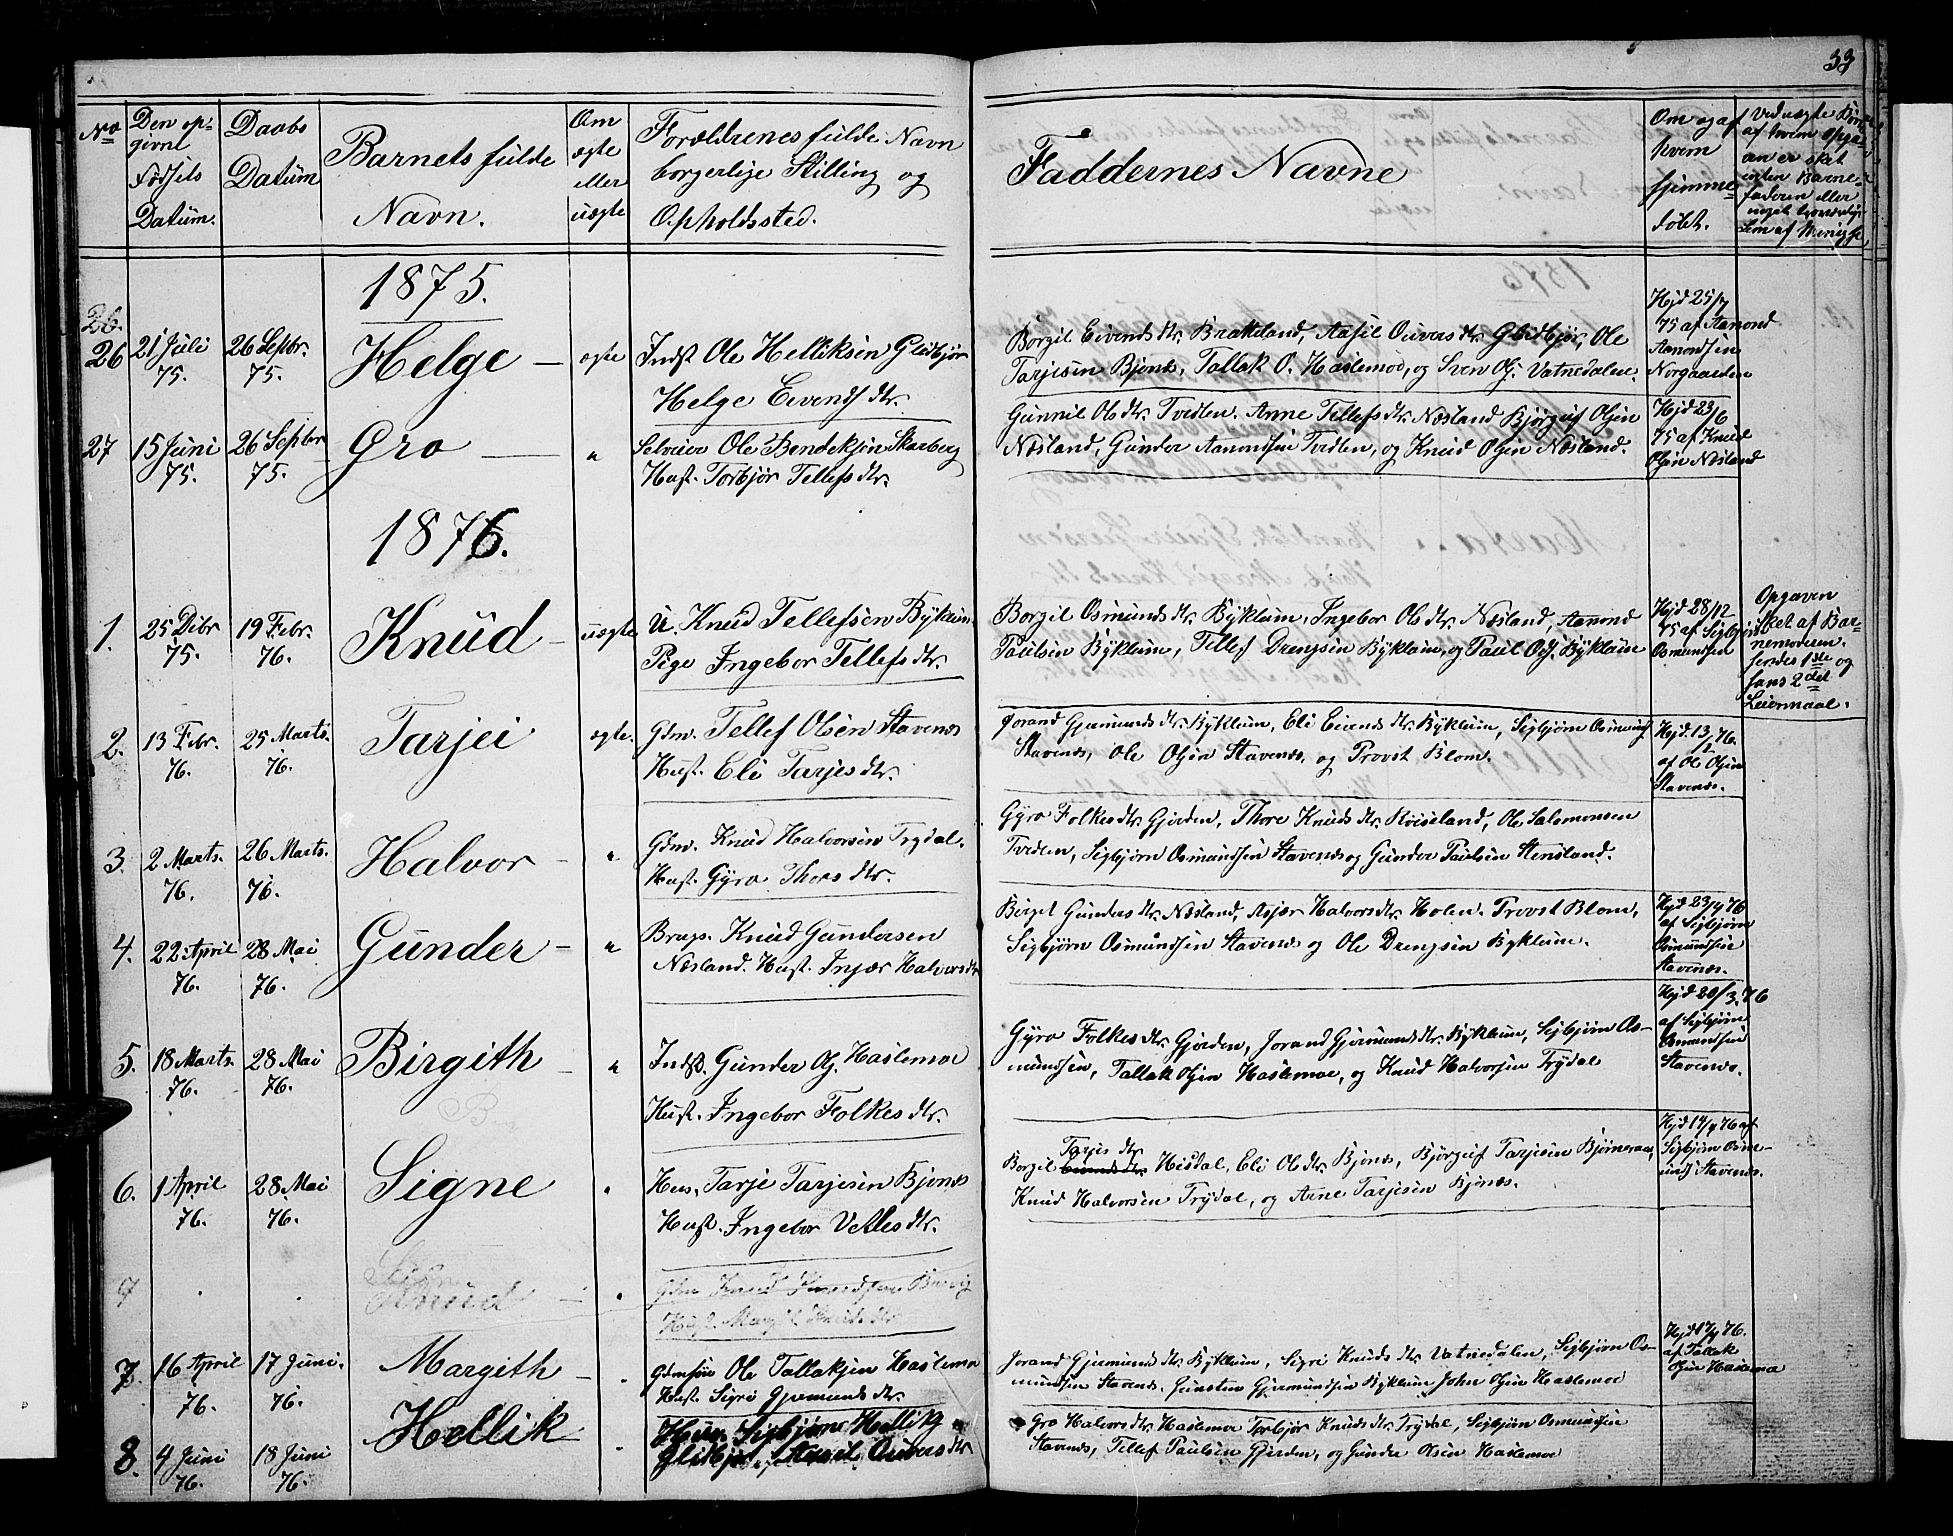 33
No
Den op-
givne
Födsels
Datum.
Daabs
Datum
Barnets fulde
Navn.
Om
ægte
eller
uægte
Forældrenes fulde Navn
borgerlige Stilling og
Opholdssted.
Faddernes Navne
Om og af
hvem
hjemme
döbt.
Ved uægte Börn
af hvem Opga-
ven er sket
enten Barne-
faderen eller
1875.
26.
26
21 Juli
75.
26 Septbr.
75.
Helge —
ægte
Indst Ole Helliksen Glidbjör
Helge Eivends dtr.
Borgil Eivends dtr. Bratteland, Aasil Ouvers dtr. Glidbjör, Ole
Tarjesen Bjönes, Tallak O. Haslemoe, og Sven Ols. Vatnedalen.
Hjd 25/7
75 af Aamond
Aamondsen
Norgaarden
27
15 Juni
75.
26 Septbr
75.
Gro —
"
Selveier Ole Bendiksön Skarberg
Hust. Torbjör Tellefs dtr.
Gunnil Ols dtr. Tveden. Anne Tellefs dtr. Næsland Björguf Olsen
Næsland, Gunder Aamondsen Tveden, og Knud Olsen Næsland.
Hjd 23/6
75 af Knud
Olsen Næsland
1876.
1.
25 Dcbr
75.
19 Febr.
76.
Knud —
uægte
U. Knud Tellefsen Byklum
Pige Ingebor Tellefs dtr.
Borgil Osmunds dtr. Byklum, Ingebor Ols dtr. Næsland, Aamond
Paulsen Byklum, Tellef Drengsen Byklum, og Paul Ols. Byklum
Hjd 28/12
75 af Sigbjörn
Osmundsen
Opgaven
sket af Bar-
nemoderen.
hendes 1ste og
hans 2det
Leiermaal.
2.
13 Febr.
76.
25 Marts.
76.
Tarjei
ægte.
Gdm. Tellef Olsen Stavenes
Hust. Eli Tarjes dtr.
Jorand Gjermunds dtr. Byklum, Eli Eivends dtr. Byklum, Sigbjörn Osmunds
Stavenes, Ole Olsen Stavenes, og Provst Blom.
Hjd. 13/2 76.
af Ole Olsen
Stavenes.
3.
2 Marts.
76.
26 Marts.
76.
Halvor —
"
Gdm. Knud Halvorsen Trydal.
Hust. Gyro Thors dtr.
Gyro Folkes dtr. Gjerden, Thore Knuds dtr. Röiseland, Ole Salomonsen
Tveden, Sigbjörn Osmundsen Stavenes og Gunder Paulsen Stensland.
4.
22 April
76.
28 Mai
76.
Gunder —
"
Brugs. Knud Gundersen
Næsland. Hust. Injær Halvors dtr
Birget Gunders dtr. Næsland, Asjær Halvors dtr. Holen. Provst Blom,
Sigbjörn Osmundsen Stavenes og Ole Drengsen Byklum.
Hjd 23/4 76
af Sigbjörn
Osmundsen
Stavenes.
5.
18 Marts.
76.
28 Mai
76.
Birgith —
"
Indst. Gunder Ols. Haslemoe
Hust. Ingebor Folkes dtr.
Gyro Folkes dtr. Gjerden, Jorand Gjermunds dtr. Byklum, Sigbjörn Os-
mundsen, Tallak Olsen Haslemoe, og Knud Halvorsen Trydal
Hjd 20/3.76
af Sigbjörn
Osmundsen
Stavenes.
6.
1 April
76.
28 Mai
76.
Signe
"
Hus. Tarje Tarjesen Bjönes
Hust. Ingebor Vetles dtr.
Tarjes dtr.
Borgil Hisdal, Eli Ols dtr. Bjönes, Björguf Tarjesen Björneraa,
Knud Halvorsen Trydal, og Arne Tarjesen Bjönes.
Hjd 14/4 76 af
Sigbjörn Osm-
unds Stavenes.
7
Knud —
Gdm Knud Knudsen
Hust. Margit Knuds dtr
7.
16 April
76.
17 Juni.
76.
Margith —
"
Gdmsön Ole Tallaksen Haslemo
Hust. Sigri Gjermunds dtr.
Jorand Gjermunds dtr. Byklum, Sigri Knuds dtr. Vatnedalen, Sigbjörn Os-
mundsen Stavenes. Gunsten Gjermundsen Byklum John Olsen Haslemoe
Hjd 17/4 76.
af Tallak
Olsen Haslemo
8.
4 Juni
76.
18 Juni
76.
Hellik
Huus. Sigbjörn Hellik
Glibjör, Aasil Ouvers dtr
Gro Halvors dtr. Haslemoe Torbjör Knuds dtr. Trydal, Sigbjörn Osmundsen
Stavenes, Tellef Paulsen Gjerden, og Gunder Olsen Haslemoe